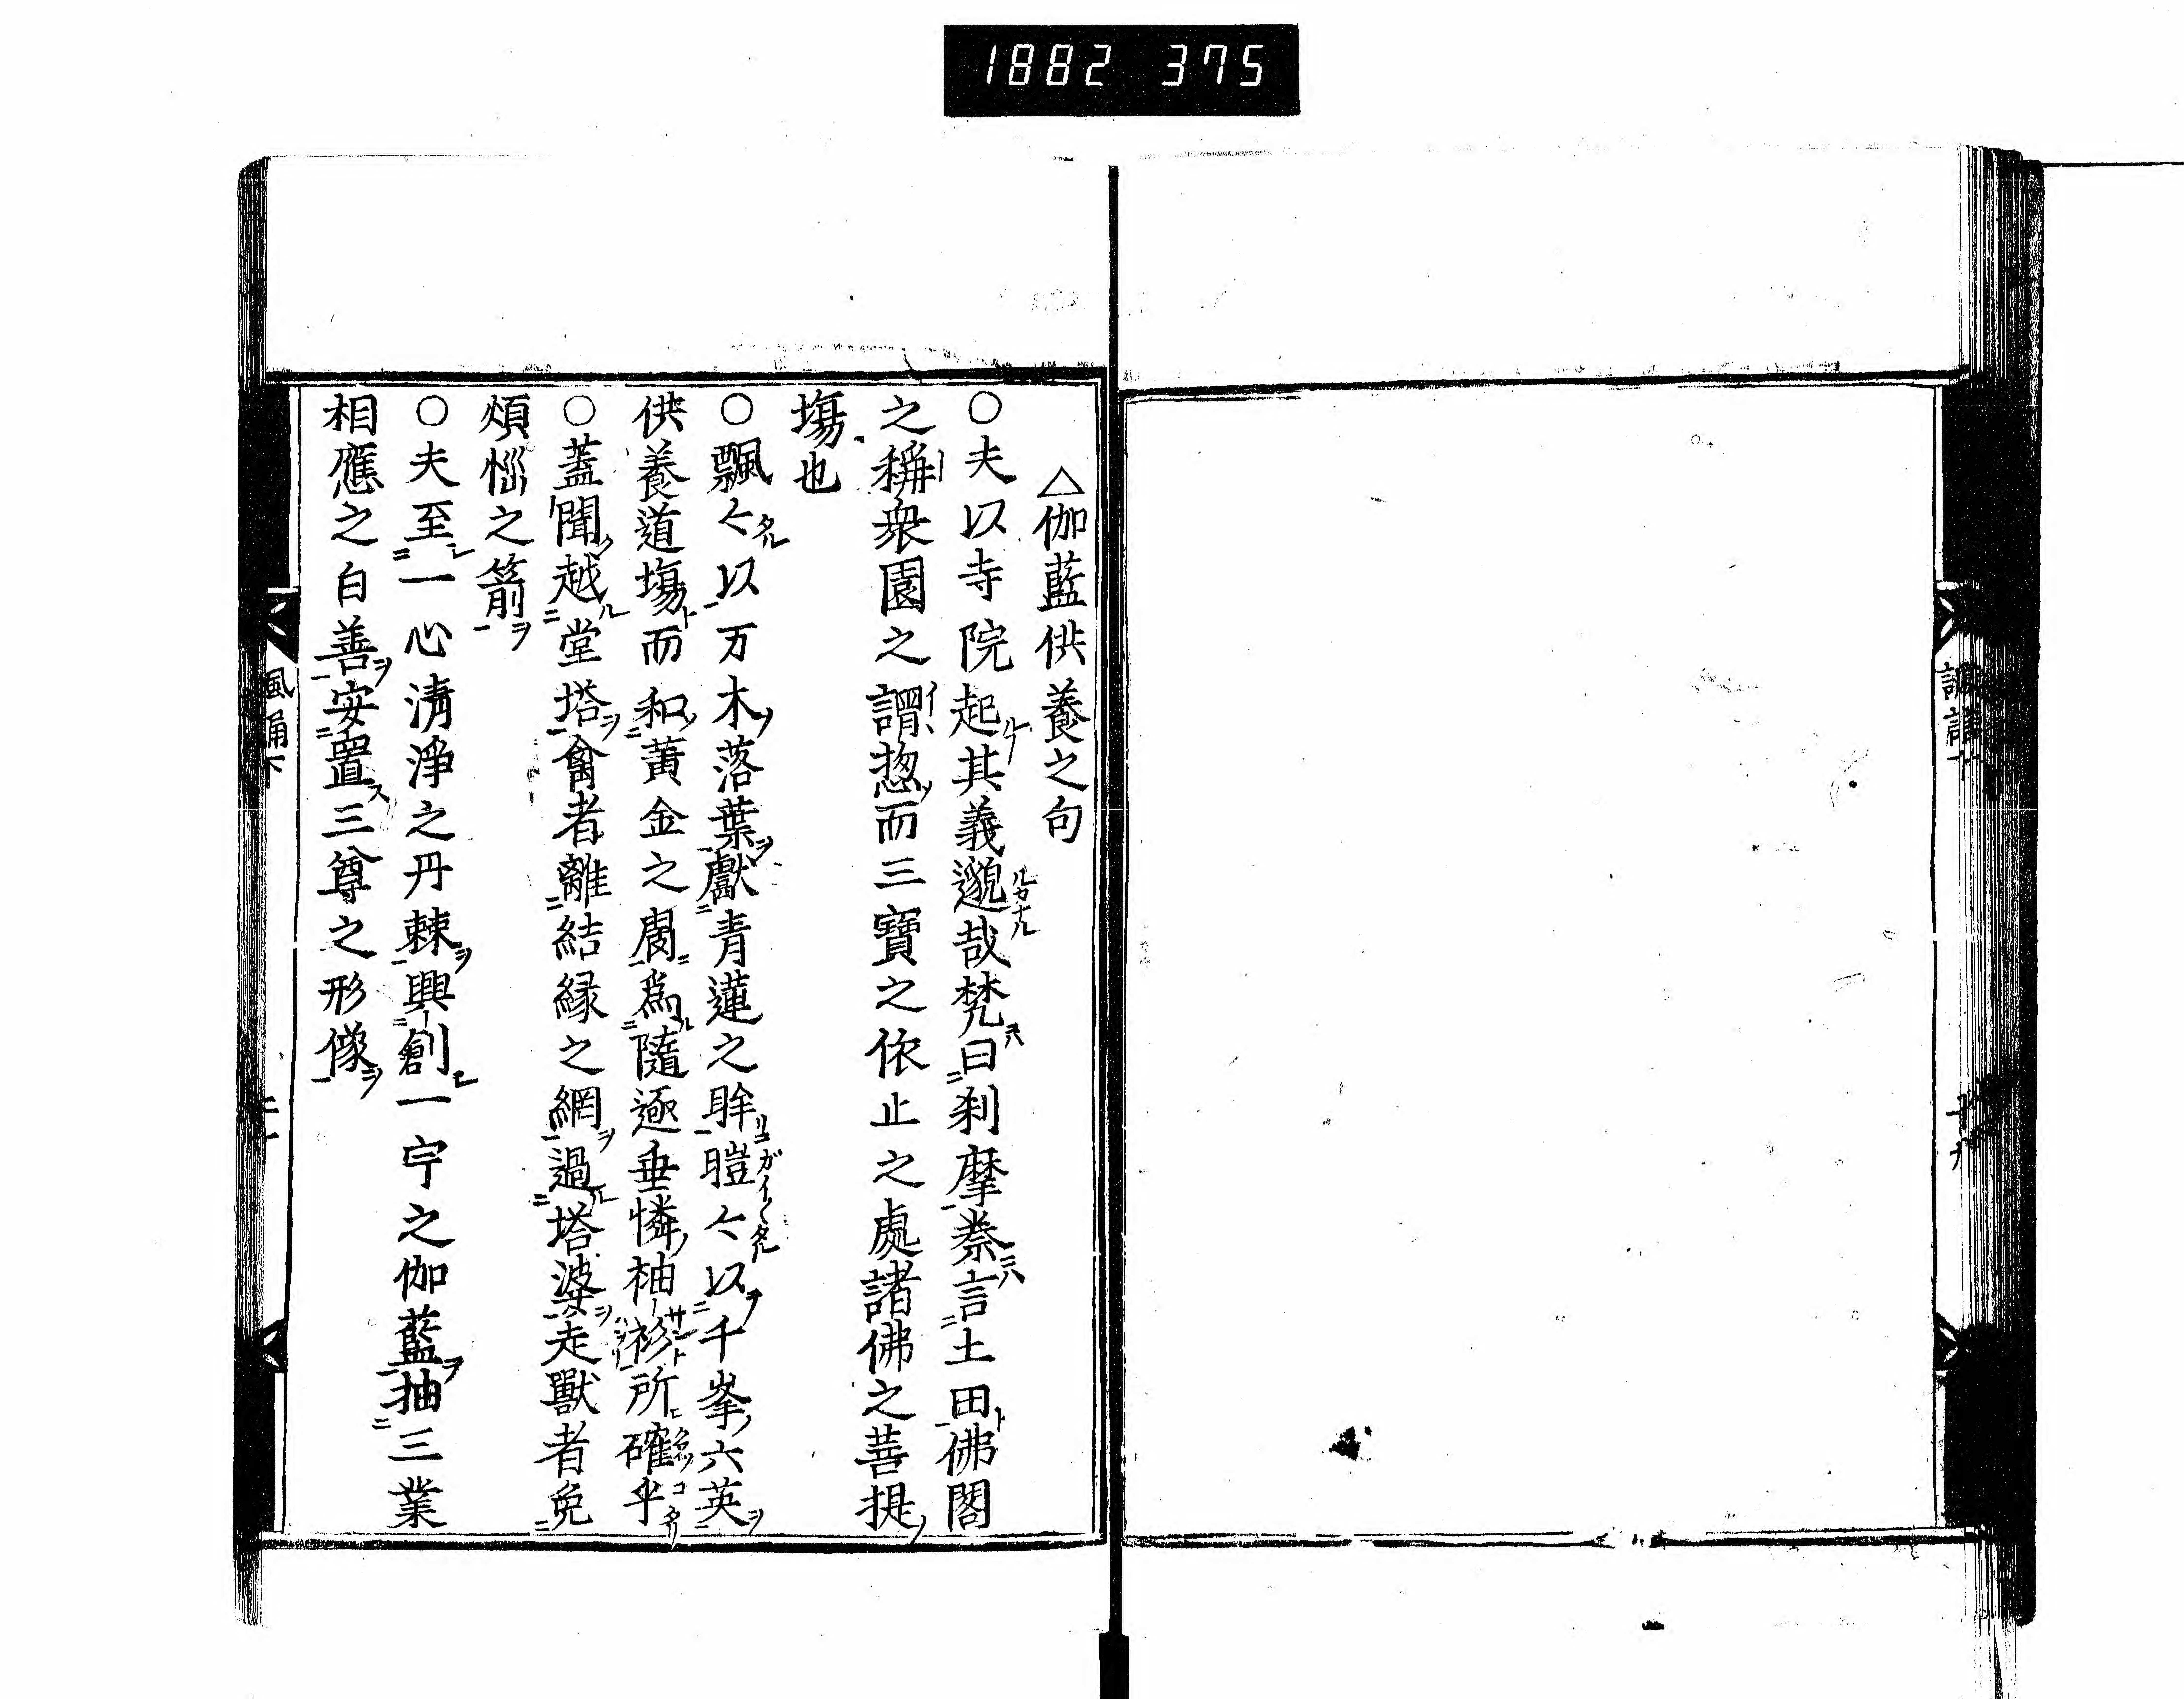 1882 375
△伽藍供養之句
○夫以寺院起其義邈哉梵曰刹摩秦言土田佛閣
之稱衆園之謂惣而三寶之依止之處諸佛之菩提
塲也
○飄〻以万木落葉獻青蓮之眸暟〻以千峯六英
供養道塲而和黄金之膚爲隨逐垂憐柚衫所確乎
○蓋聞越堂塔禽者離結縁之網過塔婆走獸者免
煩惱之箭
○夫至一心淸淨之丹棘興創一宇之伽藍抽三業
相應之白善安置三尊之形像
風誦下